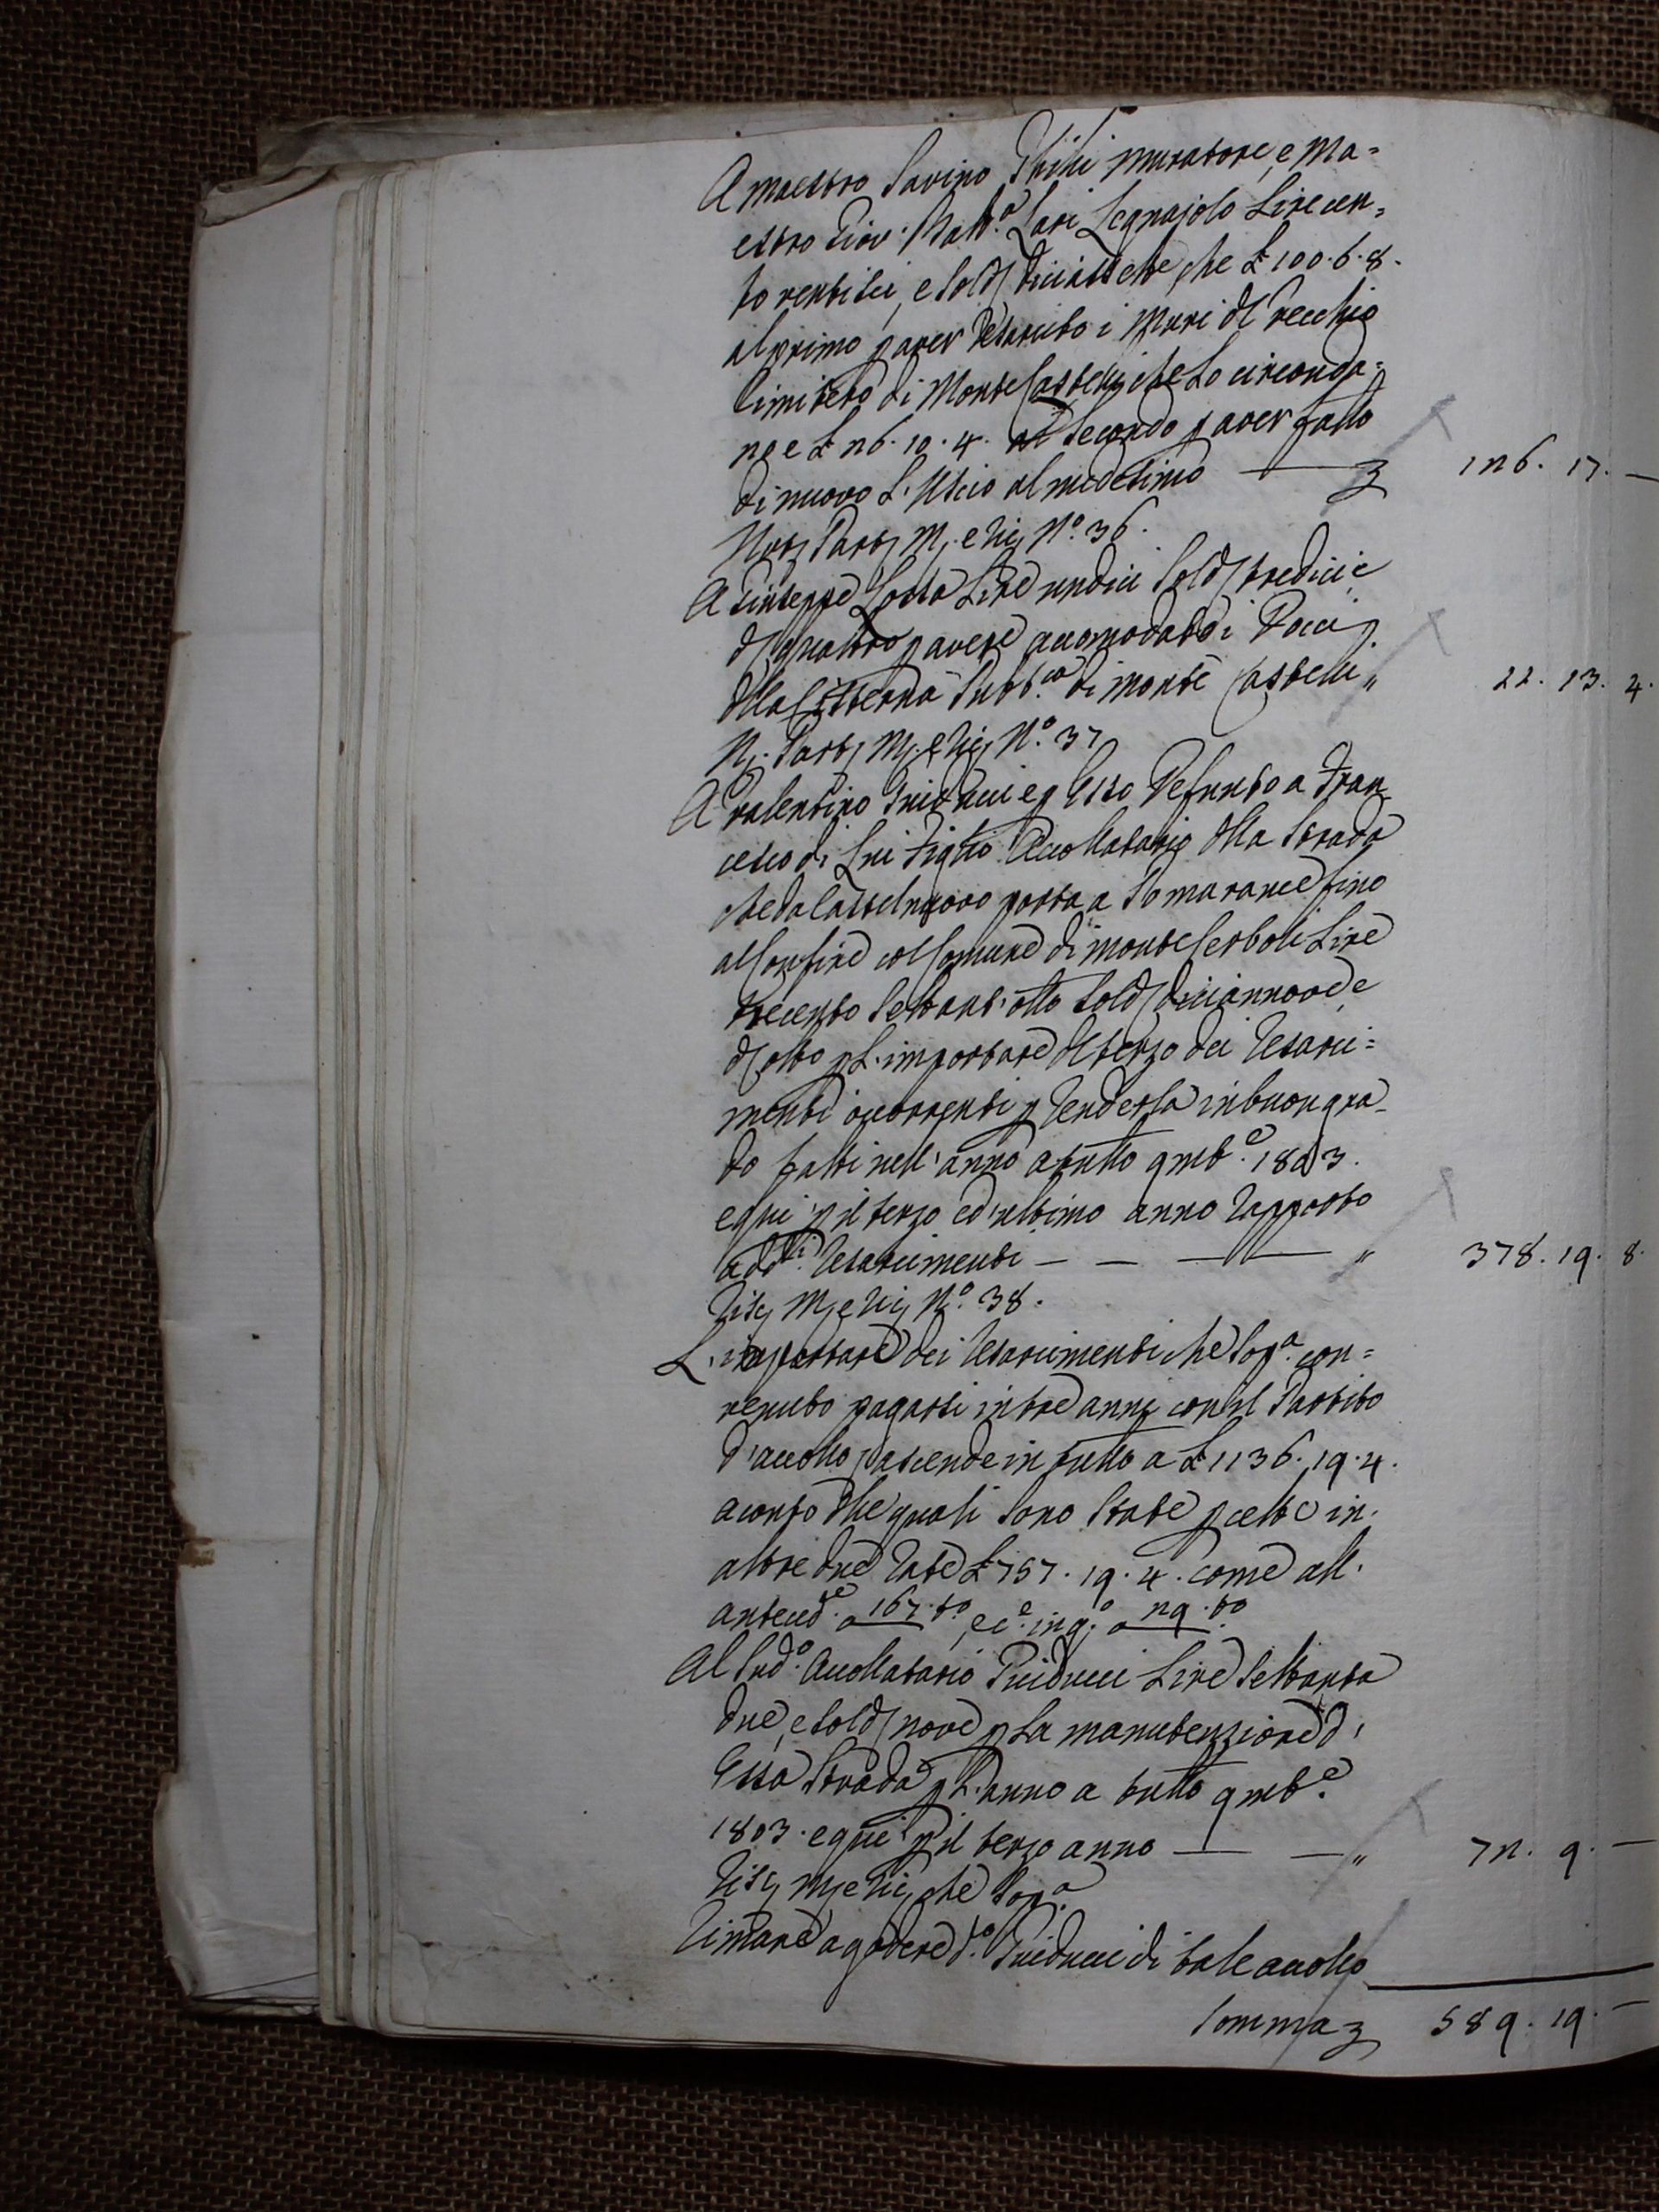 A Maestro Savino Ghilli Muratore, e Ma=
estro Giov: Batt.a Lari Legnajolo Lire cen=
to ventisei, e Sold. diciassette che £ 100.6.8.
al primo p aver resarcito i Muri dl Vecchio
Cimitero di Monte Castelli che lo circonda=
no e £ 26.10.4. al Secondo p aver fatto
di nuovo L'Uscio al medesimo — 126. 17. —
Not. Part. M. e Ric. N.o 36.
A Giuseppe Lotta Lire undici Sold. tredici, e
d. quattro p avere accomodato i Docci
dlla Citterna Pubb.ca di Monte Castelli " 22. 13. 4.
N. Part. M. e Ric. N.o 37
A Valentino Guiducci e p Esso Defunto a Fran
cesco di Lui Figlio Accollatario dlla Strada
che da Castelnuovo porta a Pomarance fino
al Confine col Comune di Monte Cerboli Lire
trecento Settant'otto Sold. diciannove, e
d. otto p L'importare dl terzo dei Resarci=
menti occorrenti p renderla in buon gra=
do fatti nell'anno a tutto 9mb.e 1803.
e qui p il terzo ed ultimo anno rapporto
a dd.i Resarcimenti — — — — " 378. 19. 8.
Ris. M. e Ric. N.o 38.
L'importare dei Resarcimenti che Sop.a con=
venuto pagarsi in tre anni con il Partito
d'accollo, ascende in tutto a £ 1136.19.4.
a conto dlle quali Sono State p cette in
altre due rate £ 757.19.4. come all'
anteced.te a 167.to, e c.e in q.o a 29.to
Al Sud.o Accollatario Guiducci Lire Settanta
due, e Sold. nove p La manutenzione d'
Essa Strada p L'anno a tutto 9mb.e
1803. e qui p il terzo anno — — " 72. 9. —
Ris. M. e Ric. che Sop.a
Rimane a godere d.o Guiducci di tale accollo
Somma 589. 19. —